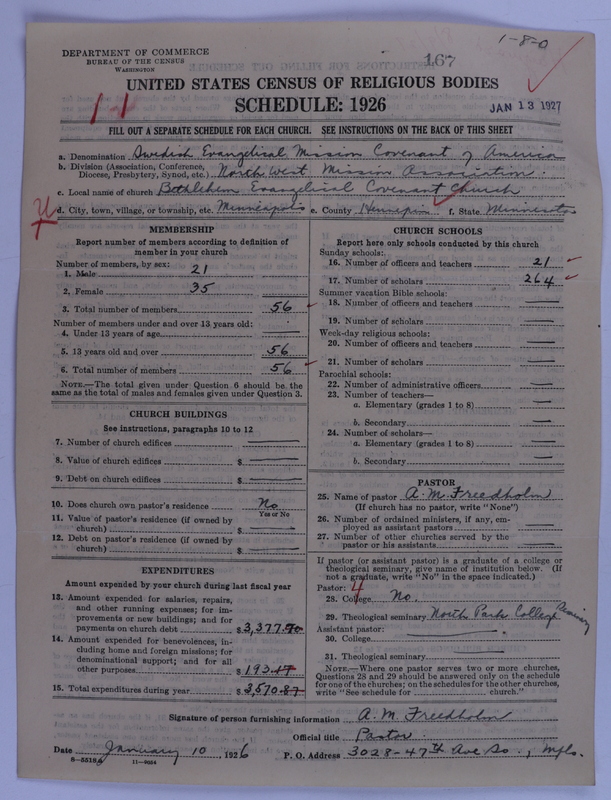 1-8-0
DEPARTMENT OF COMMERCE
BUREAU OF THE CENSUS
WASHINGTON
167
UNITED STATES CENSUS OF RELIGIOUS BODIES
SCHEDULE: 1926
JAN 13 1927
FILL OUT A SEPARATE SCHEDULE FOR EACH CHURCH. SEE INSTRUCTIONS ON THE BACK OF THIS SHEET
a. Denomination Swedish Evangelical Mission Covenant of America
b. Division (Association, Conference, Diocese, Presbytery, Synod, etc.) North West Mission Association.
c. Local name of church Bethlehem Evangelical Covenant Church
d. City, town, village, or township, etc. Minneapolis e. County Hennepin f. State Minnesota
MEMBERSHIP
Report number of members according to definition of
member in your church
Number of members, by sex:
1. Male 21
2. Female 35
3. Total number of members 56
Number of members under and over 13 years old:
4. Under 13 years of age
5. 13 years old and over 56
6. Total number of members 56
NOTE.—The total given under Question 6 should be the
same as the total of males and females given under Question 3.
CHURCH BUILDINGS
See instructions, paragraphs 10 to 12
7. Number of church edifices
8. Value of church edifices $
9. Debt on church edifices $
10. Does church own pastor's residence No
Yes or No
11. Value of pastor's residence (if owned by
church) $
12. Debt on pastor's residence (if owned by
church) $
EXPENDITURES
Amount expended by your church during last fiscal year
13. Amount expended for salaries, repairs,
and other running expenses; for im-
provements or new buildings; and for
payments on church debt $3,377.70
14. Amount expended for benevolences, in-
cluding home and foreign missions; for
denominational support; and for all
other purposes $193.17
15. Total expenditures during year $3,570.87
CHURCH SCHOOLS
Report here only schools conducted by this church
Sunday schools:
16. Number of officers and teachers 21
17. Number of scholars 264
Summer vacation Bible schools:
18. Number of officers and teachers
19. Number of scholars
Week-day religious schools:
20. Number of officers and teachers
21. Number of scholars
Parochial schools:
22. Number of administrative officers
23. Number of teachers—
a. Elementary (grades 1 to 8)
b. Secondary
24. Number of scholars—
a. Elementary (grades 1 to 8)
b. Secondary
PASTOR
25. Name of pastor A. M. Freedholm
(If church has no pastor, write "None")
26. Number of ordained ministers, if any, em-
ployed as assistant pastors
27. Number of other churches served by the
pastor or his assistants
If pastor (or assistant pastor) is a graduate of a college or
theological seminary, give name of institution below. (If
not a graduate, write "No" in the space indicated.)
Pastor: 4
28. College No.
29. Theological seminary North Park College Seminary
Assistant pastor:
30. College
31. Theological seminary
NOTE.—Where one pastor serves two or more churches,
Questions 28 and 29 should be answered only on the schedule
for one of the churches; on the schedules for the other churches,
write "See schedule for church."
Signature of person furnishing information A. M. Freedholm
Official title Pastor.
Date January 10, 1926 P. O. Address 3028-47th Ave So., Mpls.
11-9654